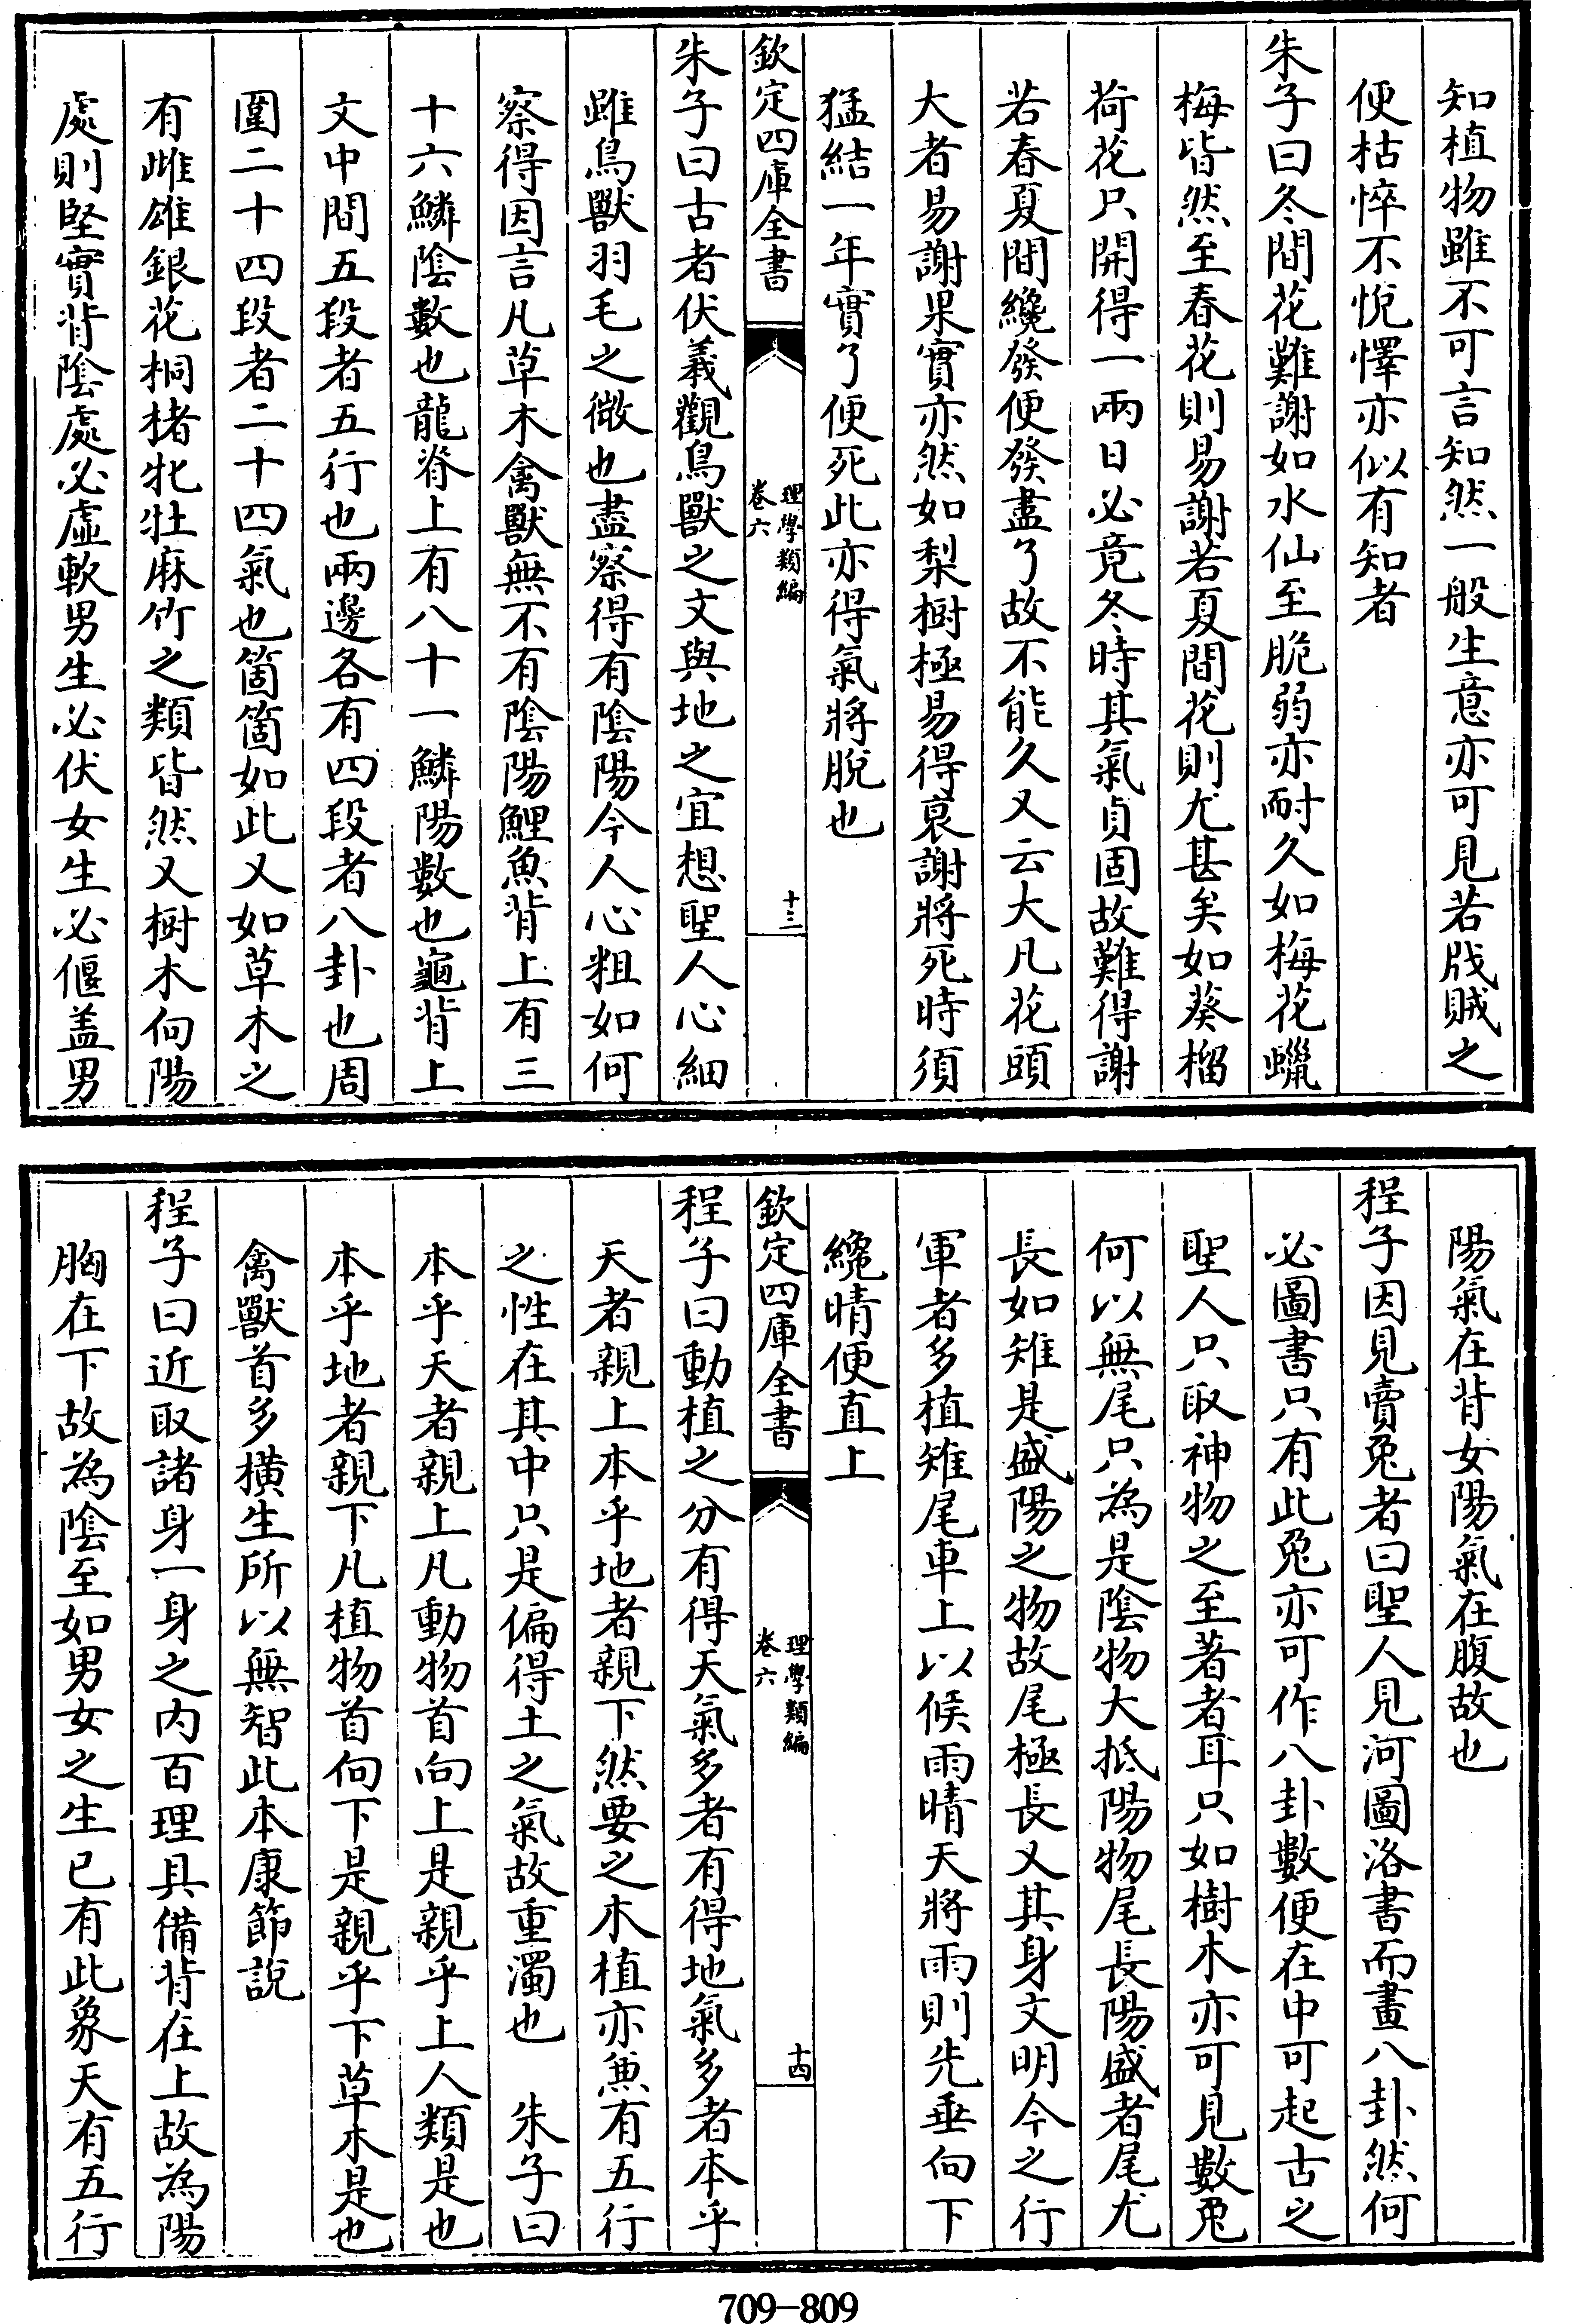 知植物雖不可言知然一般生意亦可見若戕賊之
便枯悴不悅懌亦似有知者
朱子曰冬間花難謝如水仙至脆弱亦耐久如梅花蠟
梅皆然至春花則易謝若夏間花則尤甚矣如葵榴
荷花只開得一兩日必竟冬時其氣貞固故難得謝
若春夏間纔發便發盡了故不能久又云大凡花頭
大者易謝果實亦然如梨樹極易得衰謝將死時須
猛結一年實了便死此亦得氣將脫也
欽定四庫全書
理學類編
卷六
十三
朱子曰古者伏羲觀鳥獸之文與地之宜想聖人心細
雖鳥獸羽毛之微也盡察得有陰陽今人心粗如何
察得因言凡草木禽獸無不有陰陽鯉魚背上有三
十六鱗陰數也龍脊上有八十一鱗陽數也龜背上
文中間五段者五行也兩邊各有四段者八卦也周
圍二十四段者二十四氣也箇箇如此又如草木之
有雌雄銀花桐楮牝牡麻竹之類皆然又樹木向陽
處則堅實背陰處必虛軟男生必伏女生必偃盖男
陽氣在背女陽氣在腹故也
程子因見賣兔者曰聖人見河圖洛書而畫八卦然何
必圖書只有此兔亦可作八卦數便在中可起古之
聖人只取神物之至著者耳只如樹木亦可見數兔
何以無尾只為是陰物大抵陽物尾長陽盛者尾尤
長如雉是盛陽之物故尾極長又其身文明今之行
軍者多植雉尾車上以候雨晴天將雨則先垂向下
纔晴便直上
欽定四庫全書
理學類編
卷六
十四
程子曰動植之分有得天氣多者有得地氣多者本乎
天者親上本乎地者親下然要之木植亦兼有五行
之性在其中只是偏得土之氣故重濁也　朱子曰
本乎天者親上凡動物首向上是親乎上人類是也
本乎地者親下凡植物首向下是親乎下草木是也
禽獸首多橫生所以無智此本康節說
程子曰近取諸身一身之內百理具備背在上故為陽
胸在下故為陰至如男女之生已有此象天有五行
709—809